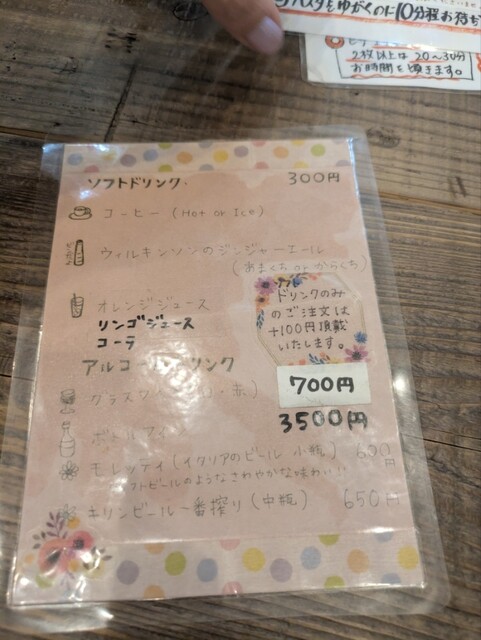 パスタをゆがくのに10分程お待ち
2枚以上は 20〜30分
お時間を頂きます。
ソフトドリンク 300円
コーヒー (Hot or Ice)
ウィルキンソンのジンジャーエール
(あまくち or からくち)
オレンジジュース
リンゴジュース
コーラ
ソフト
ドリンクのみ
のご注文は
+100円頂戴
いたします。
アルコールドリンク
グラスワイン 700円
ボトルワイン 3500円
モレッティ (イタリアのビール 小瓶) 600円
のようなさわやかな味わい!!
キリンビール一番搾り (中瓶) 650円